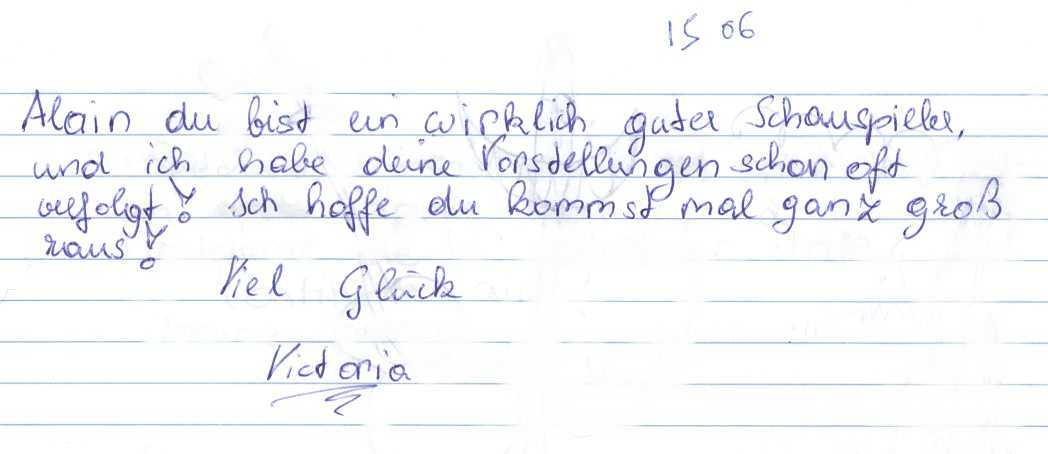 15 06
Alain du bist ein wirklich guter Schauspieler,
und ich habe deine Vorstellungen schon oft
verfolgt! Ich hoffe du kommst mal ganz groß
raus!
Viel Glück
Victoria